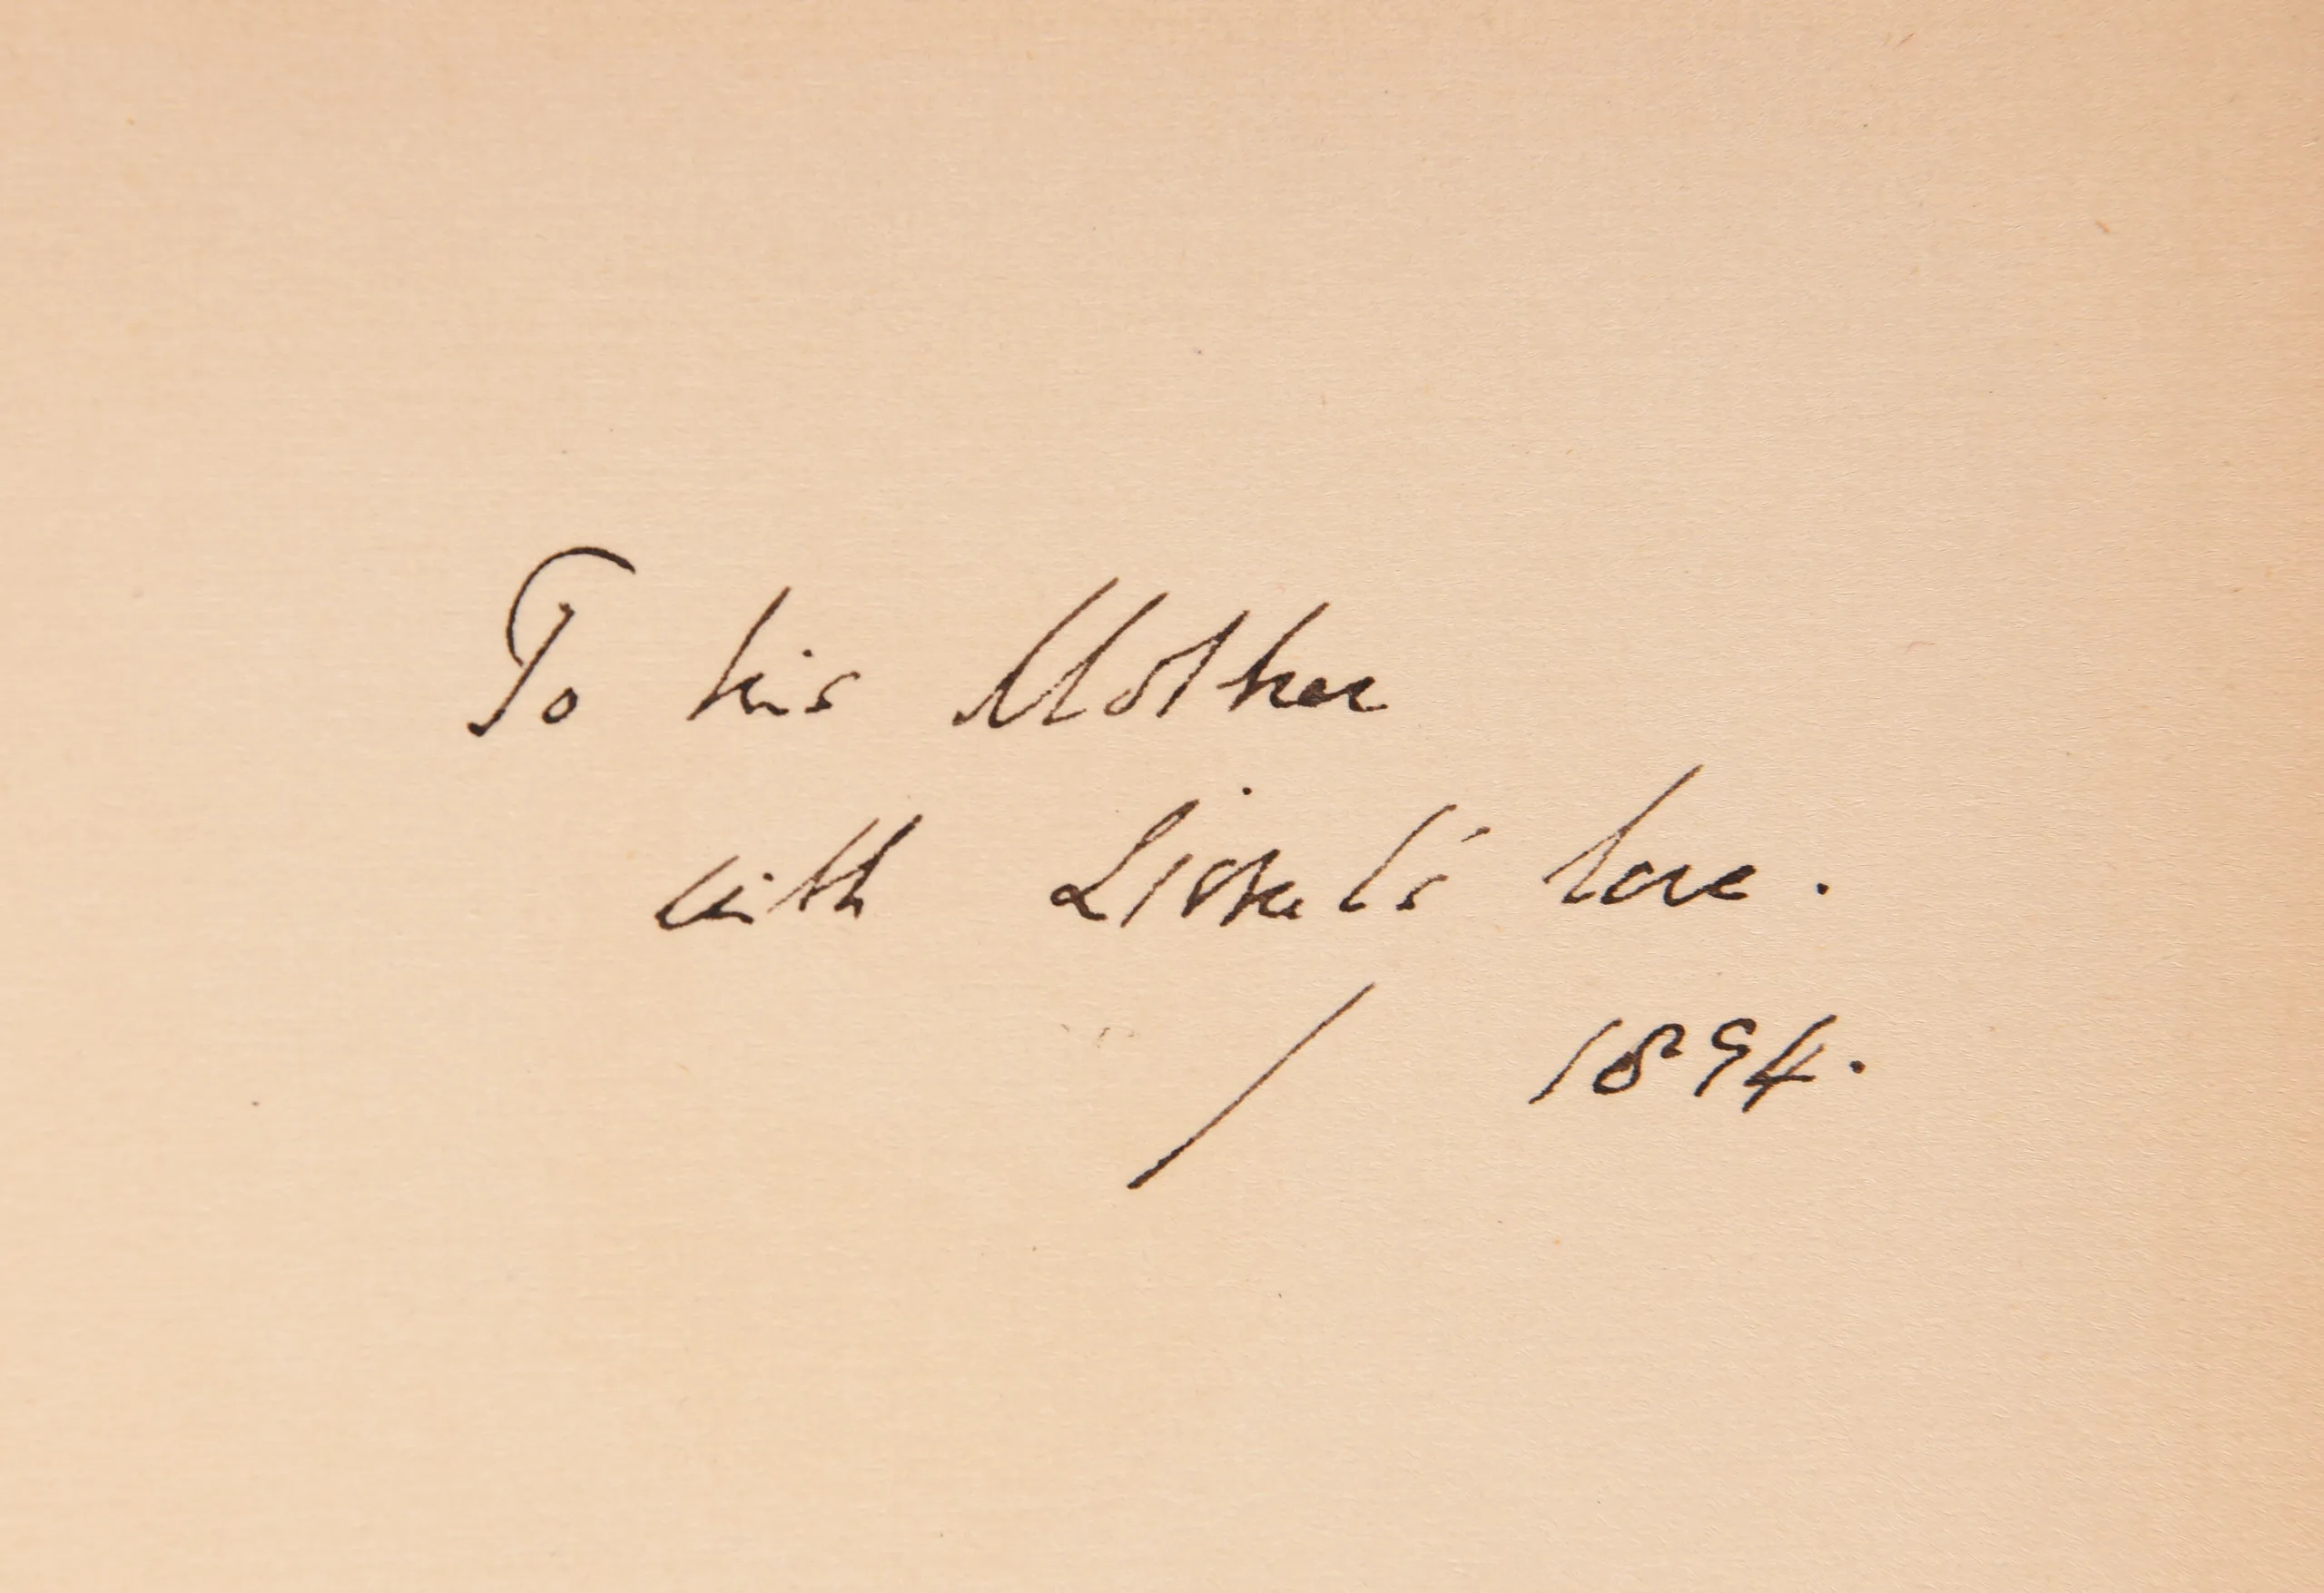 To his Mother
with Lionel's love.
1894.